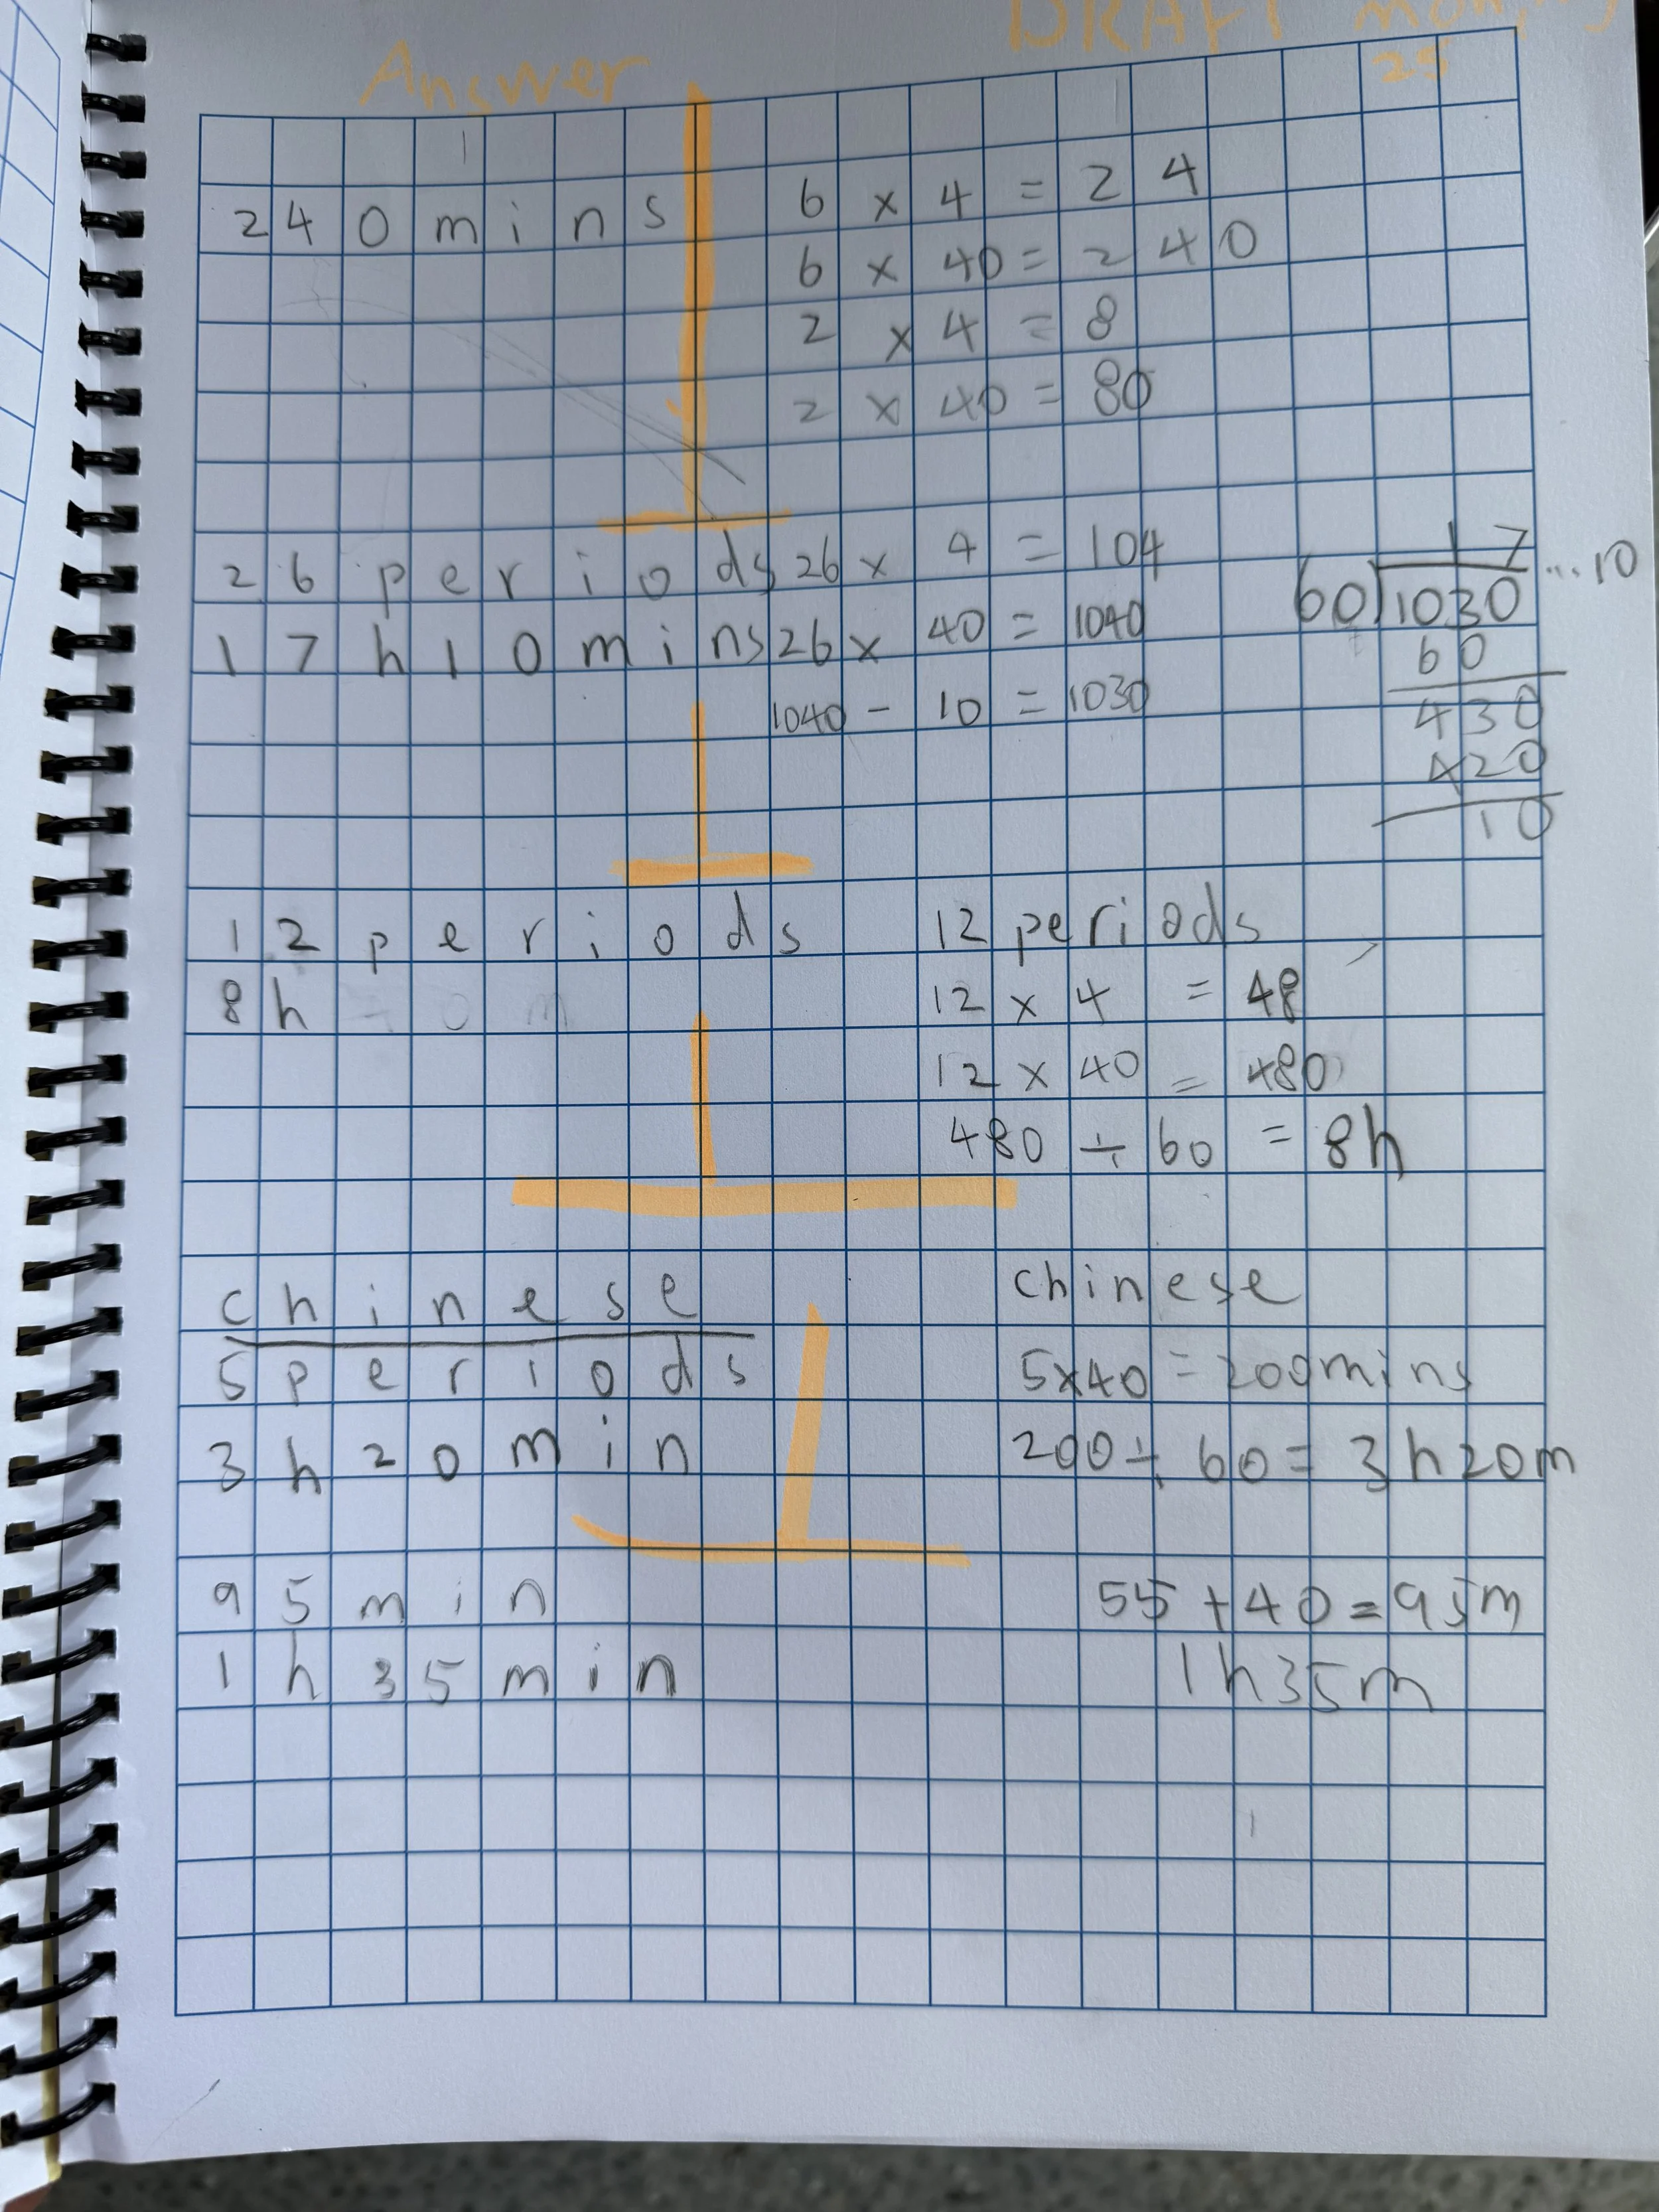 Answer
DRAFT
25
240mins
6 x 4 = 24
6 x 40 = 240
2 x 4 = 8
2 x 40 = 80
26 periods
17h10mins
26 x 4 = 104
26 x 40 = 1040
1040 - 10 = 1030
17...10
60)1030
60
430
420
10
12 periods
8h
12 periods
12 x 4 = 48
12 x 40 = 480
480 ÷ 60 = 8h
chinese
5periods
3h20min
chinese
5x40 = 200mins
200÷60 = 3h20m
95min
1h35min
55+40=95m
1h35m